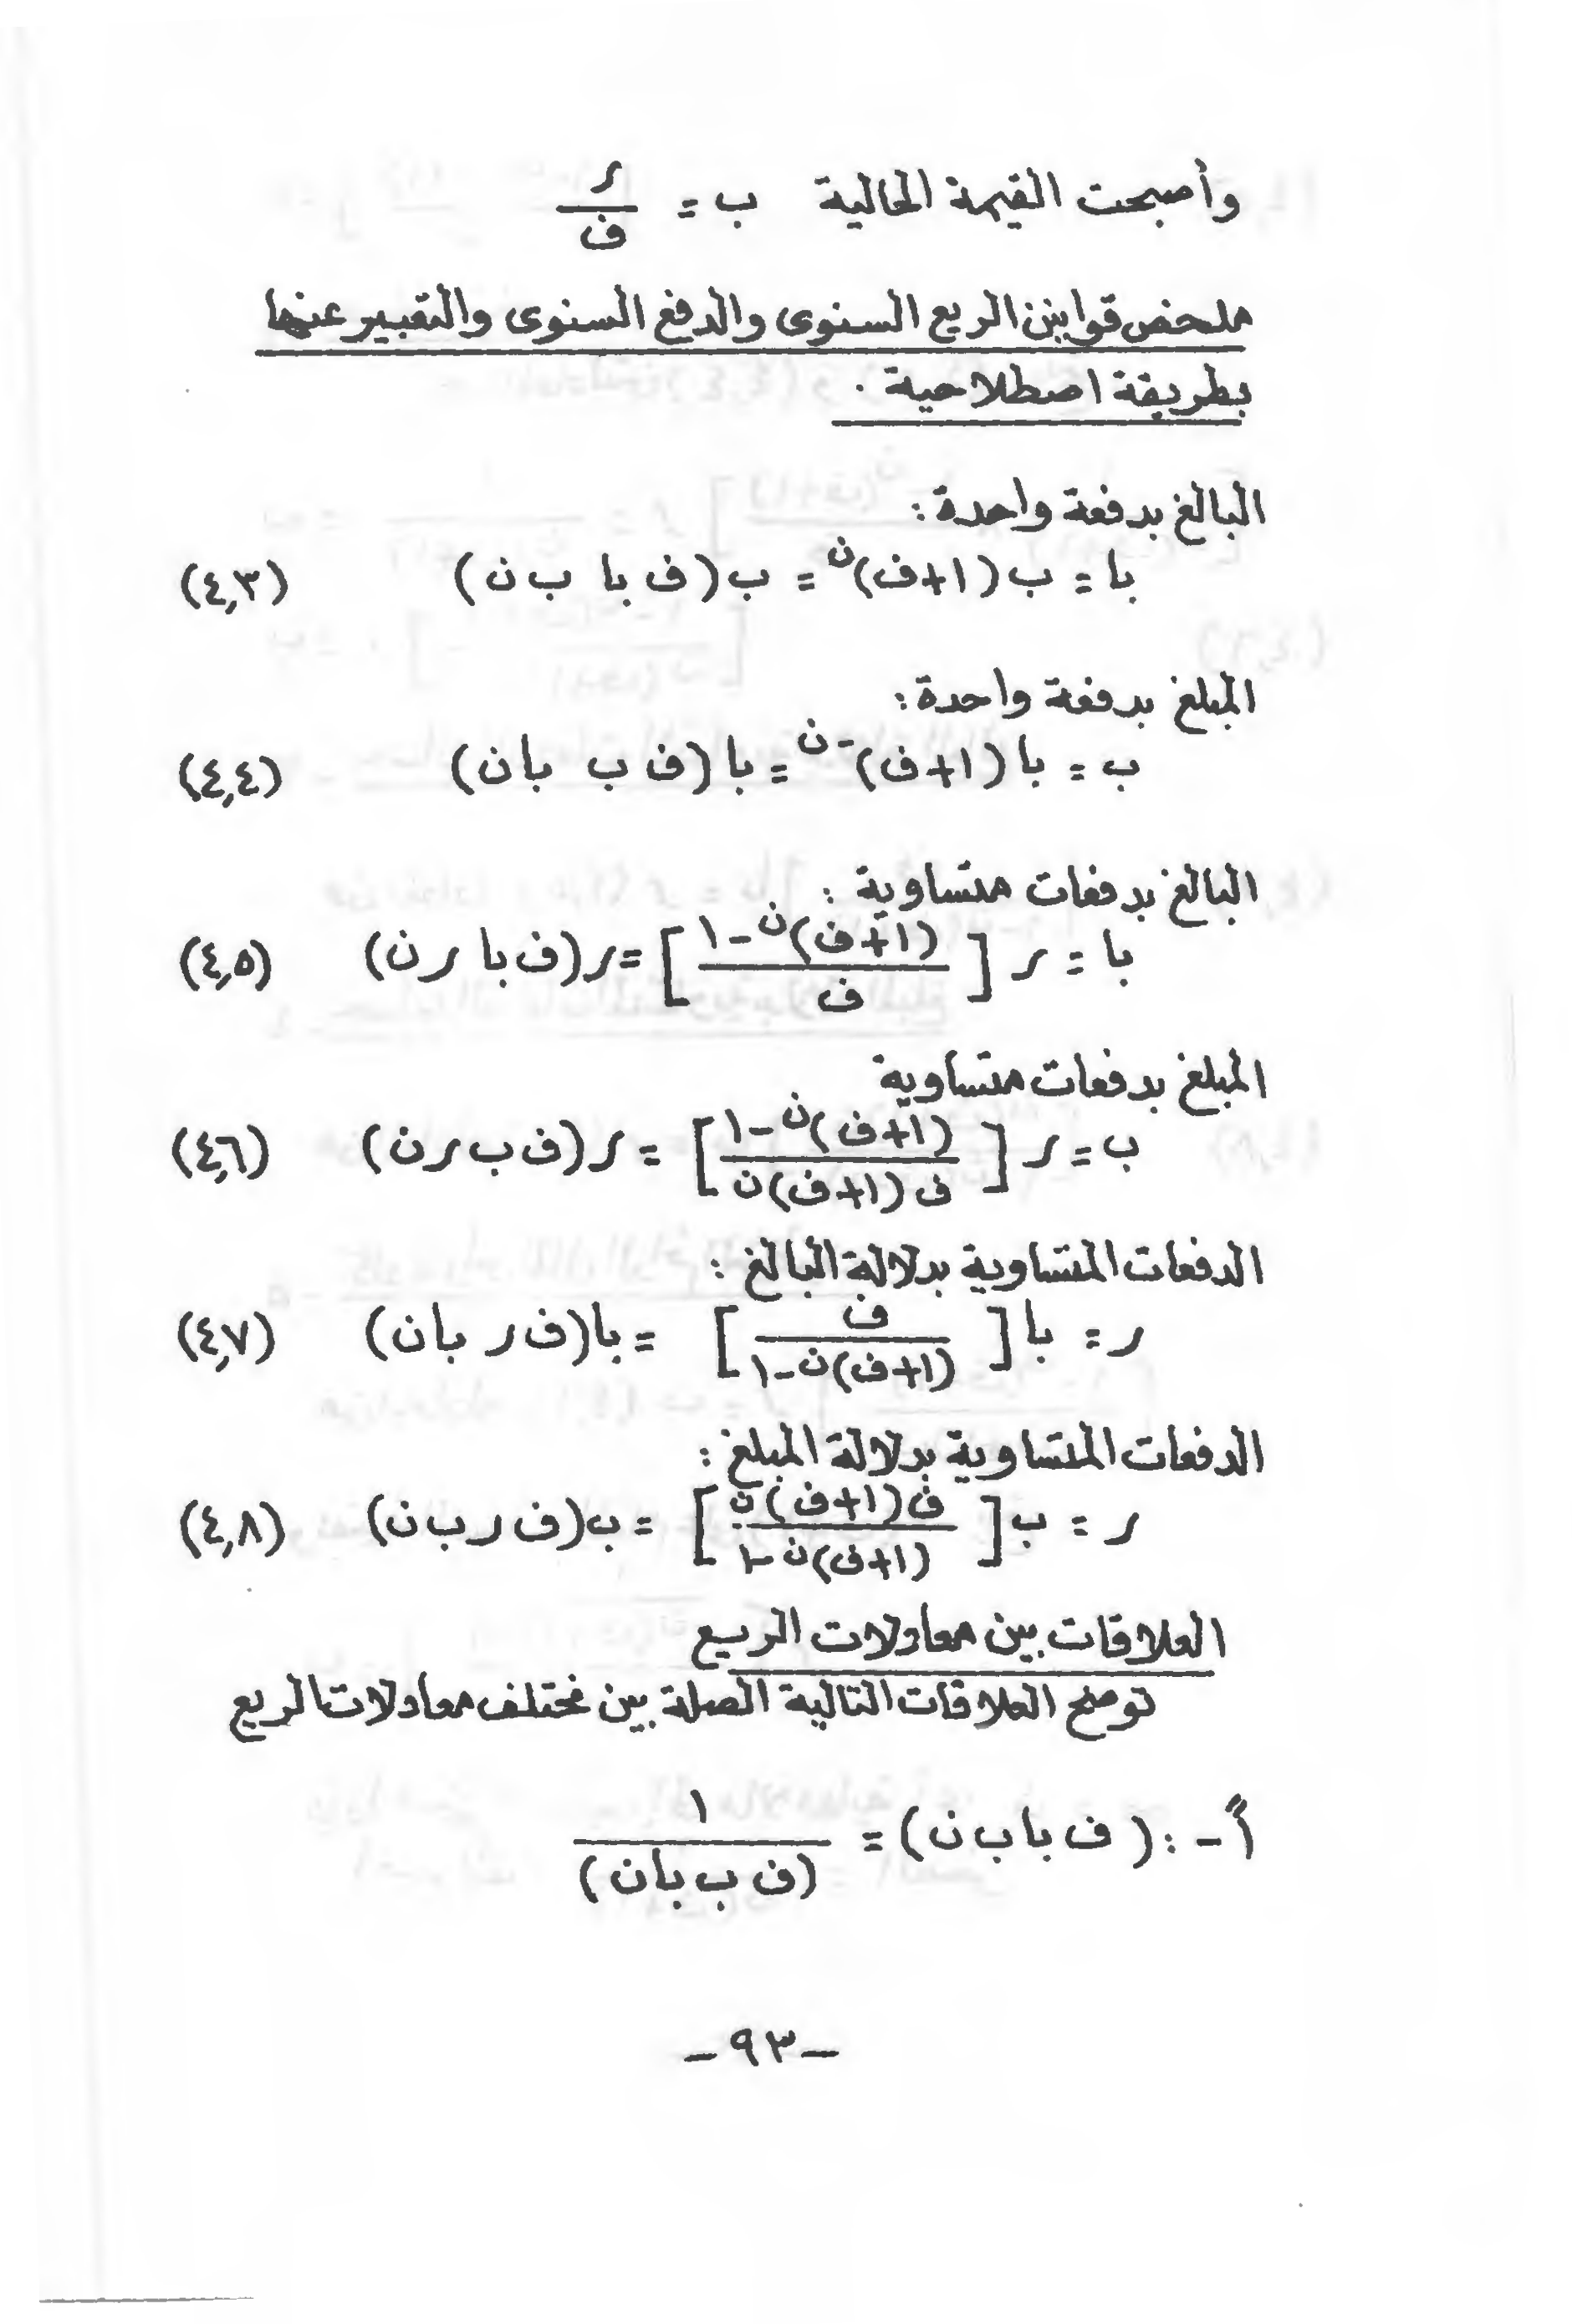 وأصبحت القيمة الحالية ب = ر / ف
ملخص قوانين الريع السنوى والدفع السنوى والتعبير عنها
بطريقة اصطلاحية .
البالغ بدفعة واحدة :
با = ب (١+ف)^ن = ب (ف با ب ن) (٤,٣)
المبلغ بدفعة واحدة :
ب = با (١+ف)^-ن = با (ف ب با ن) (٤,٤)
البالغ بدفعات متساوية :
با = ر [ (١+ف)^ن - ١ / ف ] = ر (ف با ر ن) (٤,٥)
المبلغ بدفعات متساوية
ب = ر [ (١+ف)^ن - ١ / ف (١+ف)ن ] = ر (ف ب ر ن) (٤,٦)
الدفعات المتساوية بدلالة البالغ :
ر = با [ ف / (١+ف)ن - ١ ] = با (ف ر با ن) (٤,٧)
الدفعات المتساوية بدلالة المبلغ :
ر = ب [ ف (١+ف)ن / (١+ف)ن - ١ ] = ب (ف ر ب ن) (٤,٨)
العلاقات بين معادلات الريع
توضح العلاقات التالية الصلة بين مختلف معادلات الريع
أً - : ( ف با ب ن ) = ١ / (ف ب با ن)
- ٩٣ -